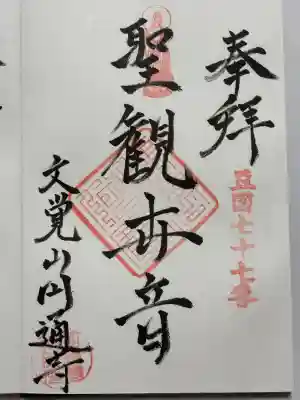 奉拝
五百七十七年
聖観世音
文覚山円通寺